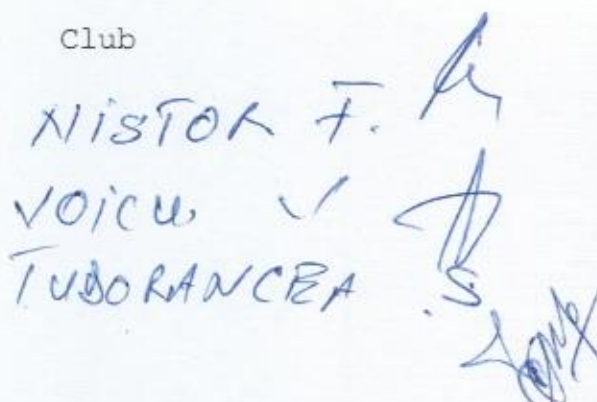 Club
NISTOR F.
VOICU V
TUDORANCEA S.